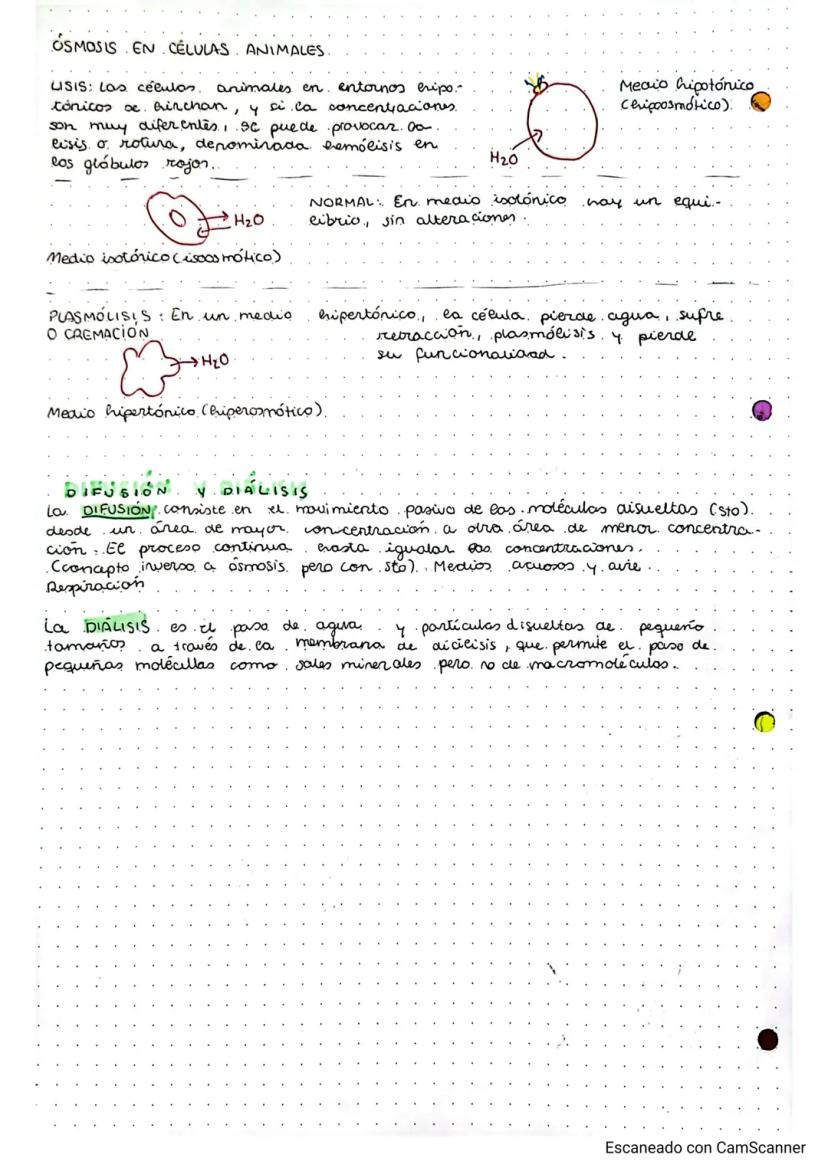 ÓSMOSIS EN CÉLULAS ANIMALES
LISIS: Las células animales en entornos hipo-
tónicos se hinchan, y si la concentraciones
son muy diferentes, se puede provocar la
lisis o rotura, denominada hemólisis en
los glóbulos rojos.
Medio hipotónico
(hipoosmótico).
H2O
NORMAL: En medio isotónico hay un equi-
librio, sin alteraciones.
H2O
Medio isotónico (isoosmótico)
PLASMÓLISIS: En un medio hipertónico, la célula pierde agua, sufre
O CREMACIÓN retracción, plasmólisis y pierde
su funcionalidad.
H2O
Medio hipertónico (hiperosmótico).
DIFUSIÓN Y DIÁLISIS
La DIFUSIÓN consiste en el movimiento pasivo de las moléculas disueltas (sto).
desde un área de mayor concentración a otra área de menor concentra-
ción. El proceso continua hasta igualar las concentraciones.
(concepto inverso a ósmosis pero con sto). Medios acuosos y aire.
Respiración
La DIÁLISIS es el paso de agua y partículas disueltas de pequeño
tamaños a través de la membrana de diálisis, que permite el paso de
pequeñas molécullas como sales minerales pero no de macromoléculas.
Escaneado con CamScanner